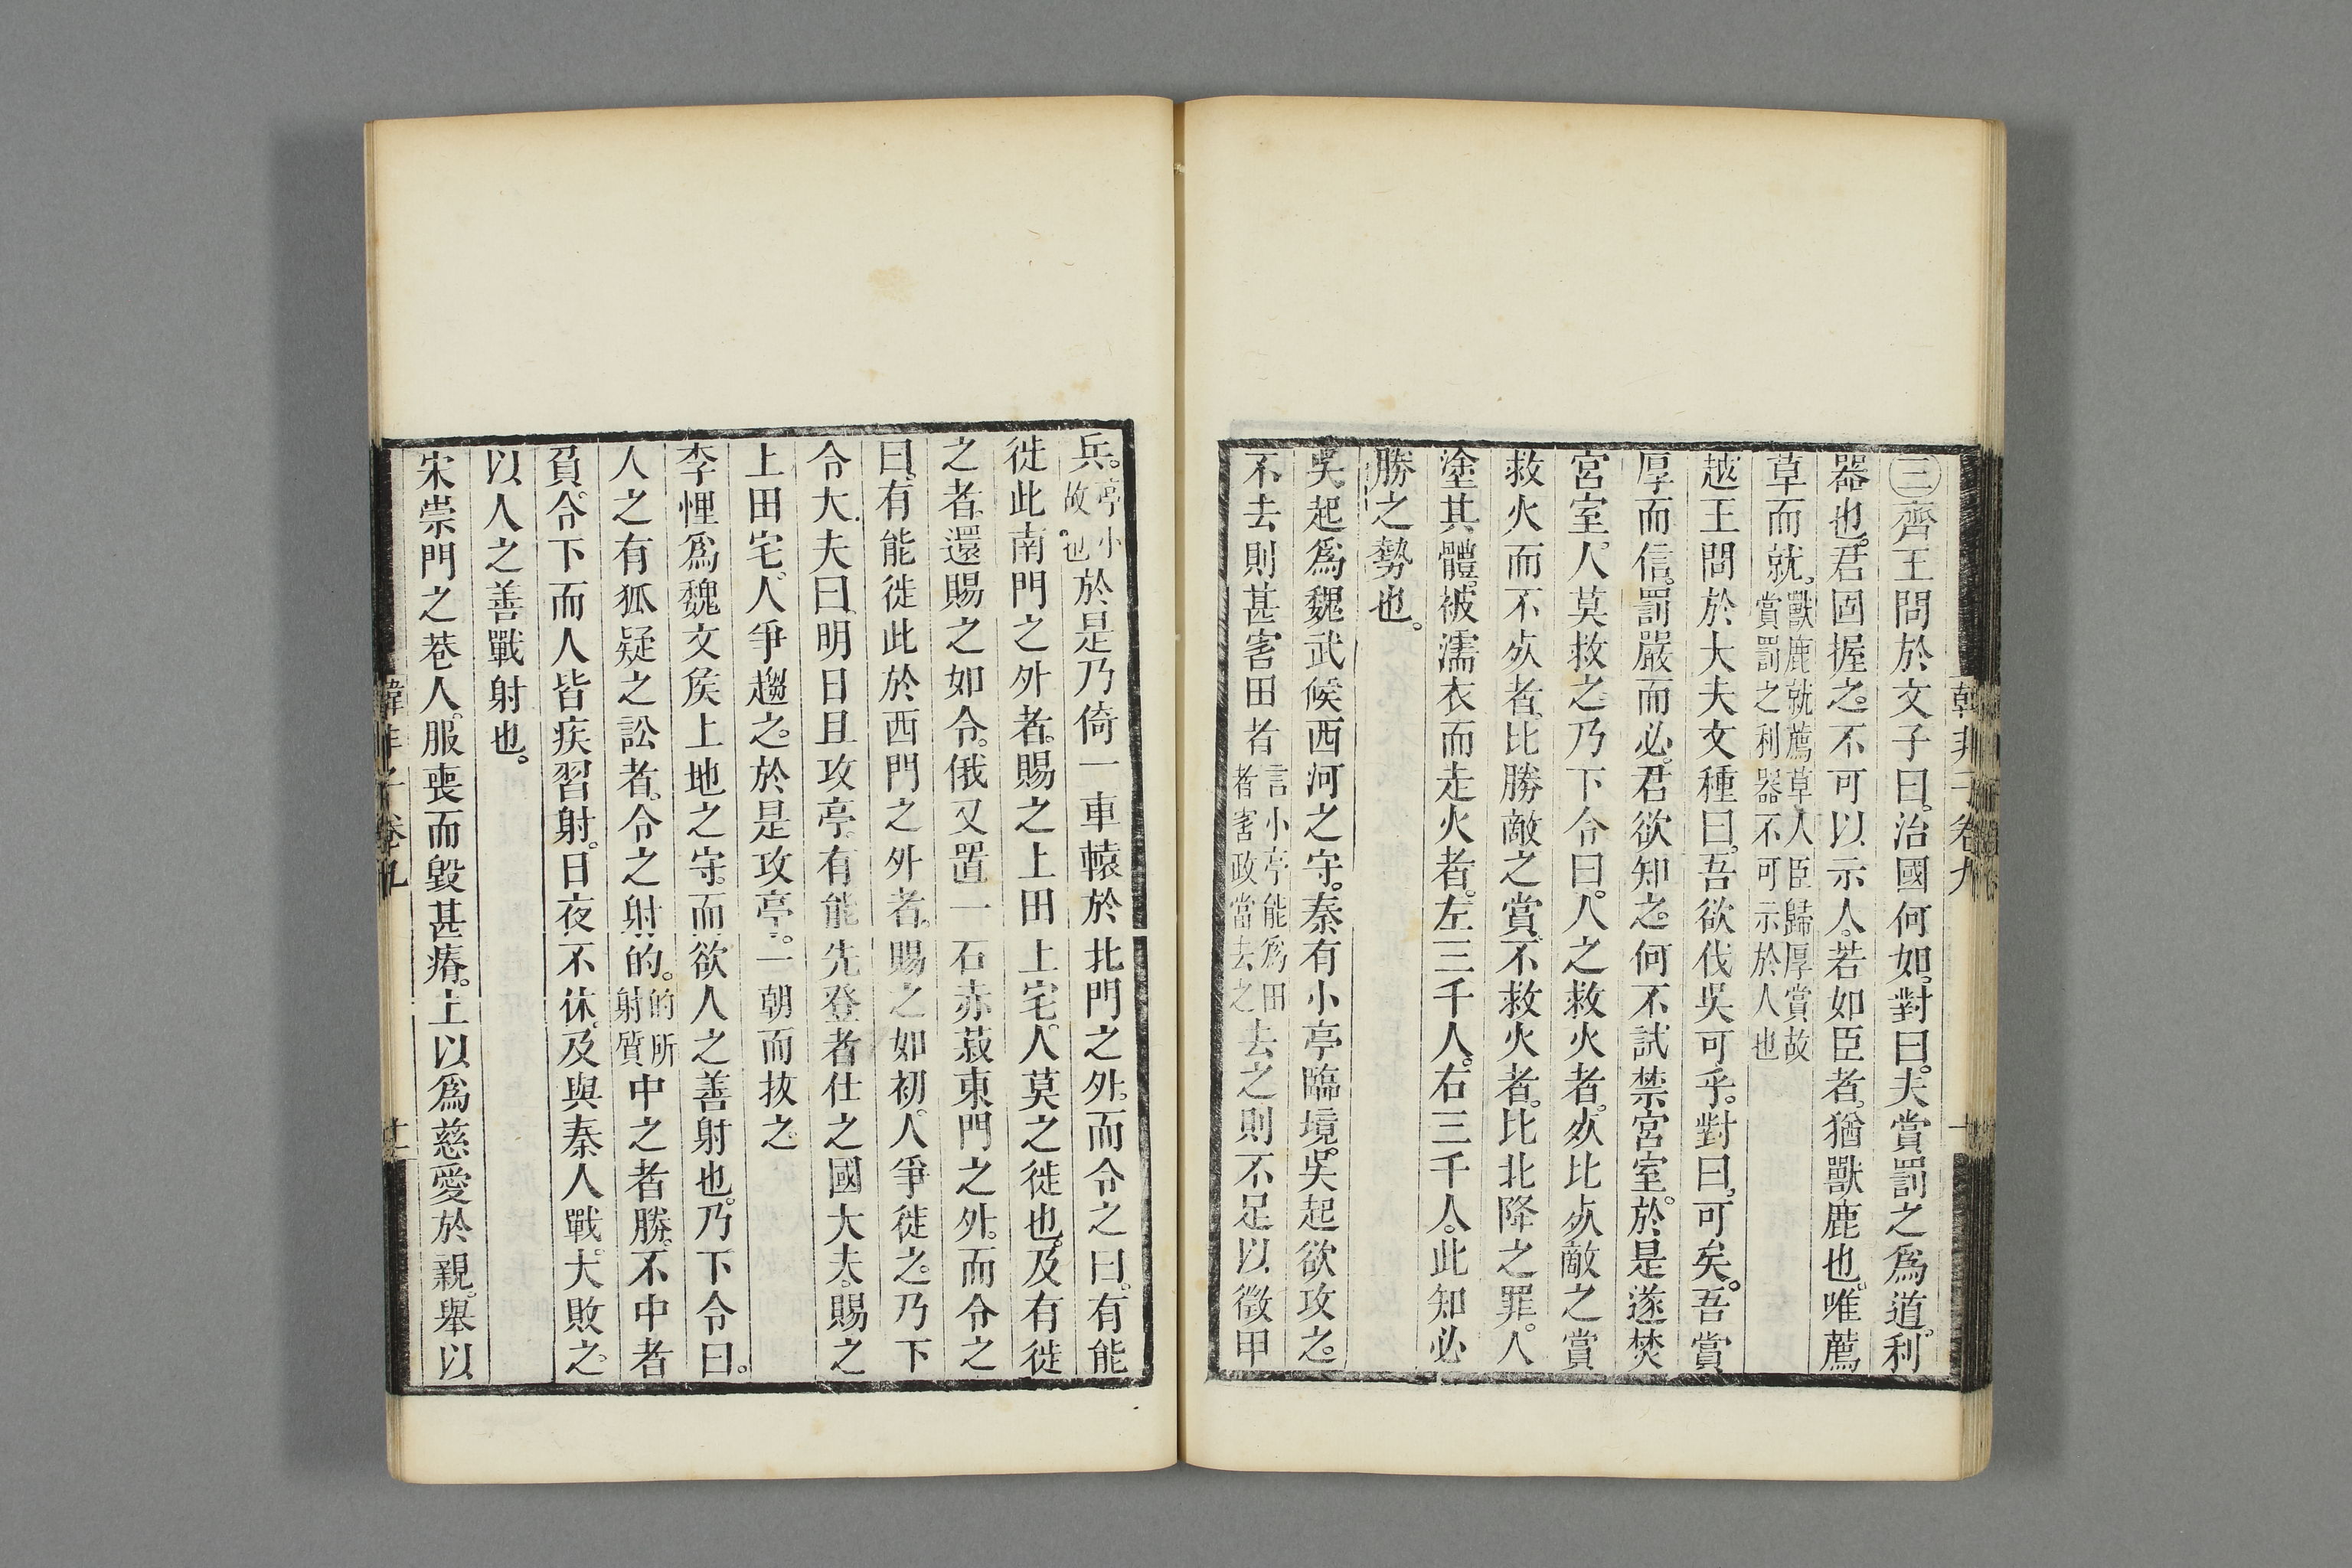 韓非子卷九
㊂齊王問於文子曰。治國何如。對曰。夫賞罰之爲道。利
器也。君固握之。不可以示人。若如臣者。猶獸鹿也。唯薦
草而就。獸鹿就薦草人臣歸厚賞故賞罰之利器不可示於人也
越王問於大夫文種曰。吾欲伐吳可乎。對曰。可矣。吾賞
厚而信。罰嚴而必。君欲知之。何不試禁宮室。於是遂焚
宮室。人莫救之。乃下令曰。人之救火者。㱙比㱙敵之賞
救火而不㱙者。比勝敵之賞。不救火者。比北降之罪。人
塗其體。被濡衣而走火者。左三千人。右三千人。此知必
勝之勢也。
吳起爲魏武候西河之守。秦有小亭臨境。吳起欲攻之。
不去則甚害田者言小亭能爲田者害政當去之去之則不足以徵甲
兵。亭小故也。於是乃倚一車轅於北門之外。而令之曰。有能
徙此南門之外者。賜之上田上宅。人莫之徙也。及有徙
之者。還賜之如令。俄又置一石赤菽東門之外。而令之
曰。有能徙此於西門之外者。賜之如初。人爭徙之。乃下
令大夫曰。明日且攻亭。有能先登者仕之國大夫。賜之
上田宅。人爭趨之。於是攻亭。一朝而抜之。
李悝爲魏文侯上地之守。而欲人之善射也。乃下令曰。
人之有狐疑之訟者。令之射的。的所射質中之者勝。不中者
負。令下而人皆疾習射。日夜不休。及與秦人戰。大敗之。
以人之善戰射也。
宋崇門之巷人。服喪而毀甚瘠。上以爲慈愛於親。舉以
韓非子卷九